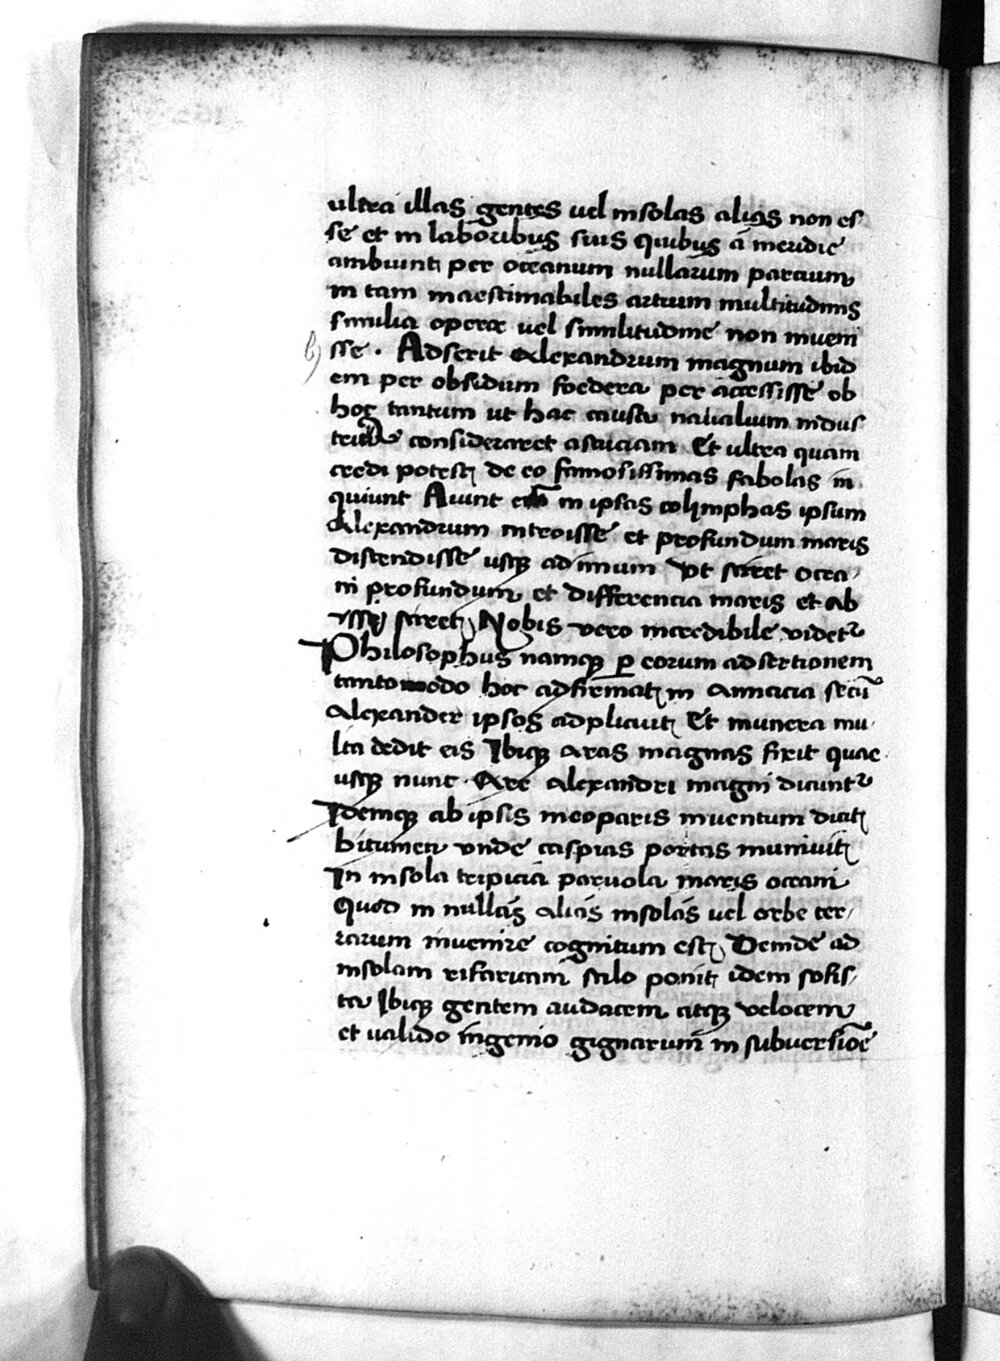 ultra illas gentes uel insolas alias non es
se et in laboribus suis quibus a meridie
ambiunt per oceanum nullarum parcium
in tam inaestimabiles artium multitudinis
similia operae uel similitudine non inueni
sse. Adserit Alexandrum magnum ibid
em per obsidum foedera per accessisse ob
hoc tantum ut hac causa naualium indus
consideraret astuciam Et ultra quam
credi potest de eo famosissimas fabolas in
quiunt Aiunt in ipsas colimphas ipsum
Alexandrum introisse et profundum maris
discendisse usq ad imum Vt sciret ocea
ni profundum et differencia maris et ab
yssi sciret Nobis vero incredibile videt
Philosophus namq p eorum adsertionem
tantomodo hoc adfirmat in Amacia secū
Alexander ipsos adplicuit Et munera mu
lta dedit eis Ibiq aras magnas fixit quae
usq nunc Are Alexandri magni dicunt
Idemq ab ipsis meoparis inuentum dicit
bitumen vnde caspias portas muniuit
In insola tripicia paruola maris oceani
Quod in nullas alias insolas uel orbe ter
rarum inuenire cognitum est Deinde ad
insolam rifaricam stilo ponit idem sofis
ta Ibiq gentem audacem atq velocem
et ualido ingenio gignarum in subuersiōe